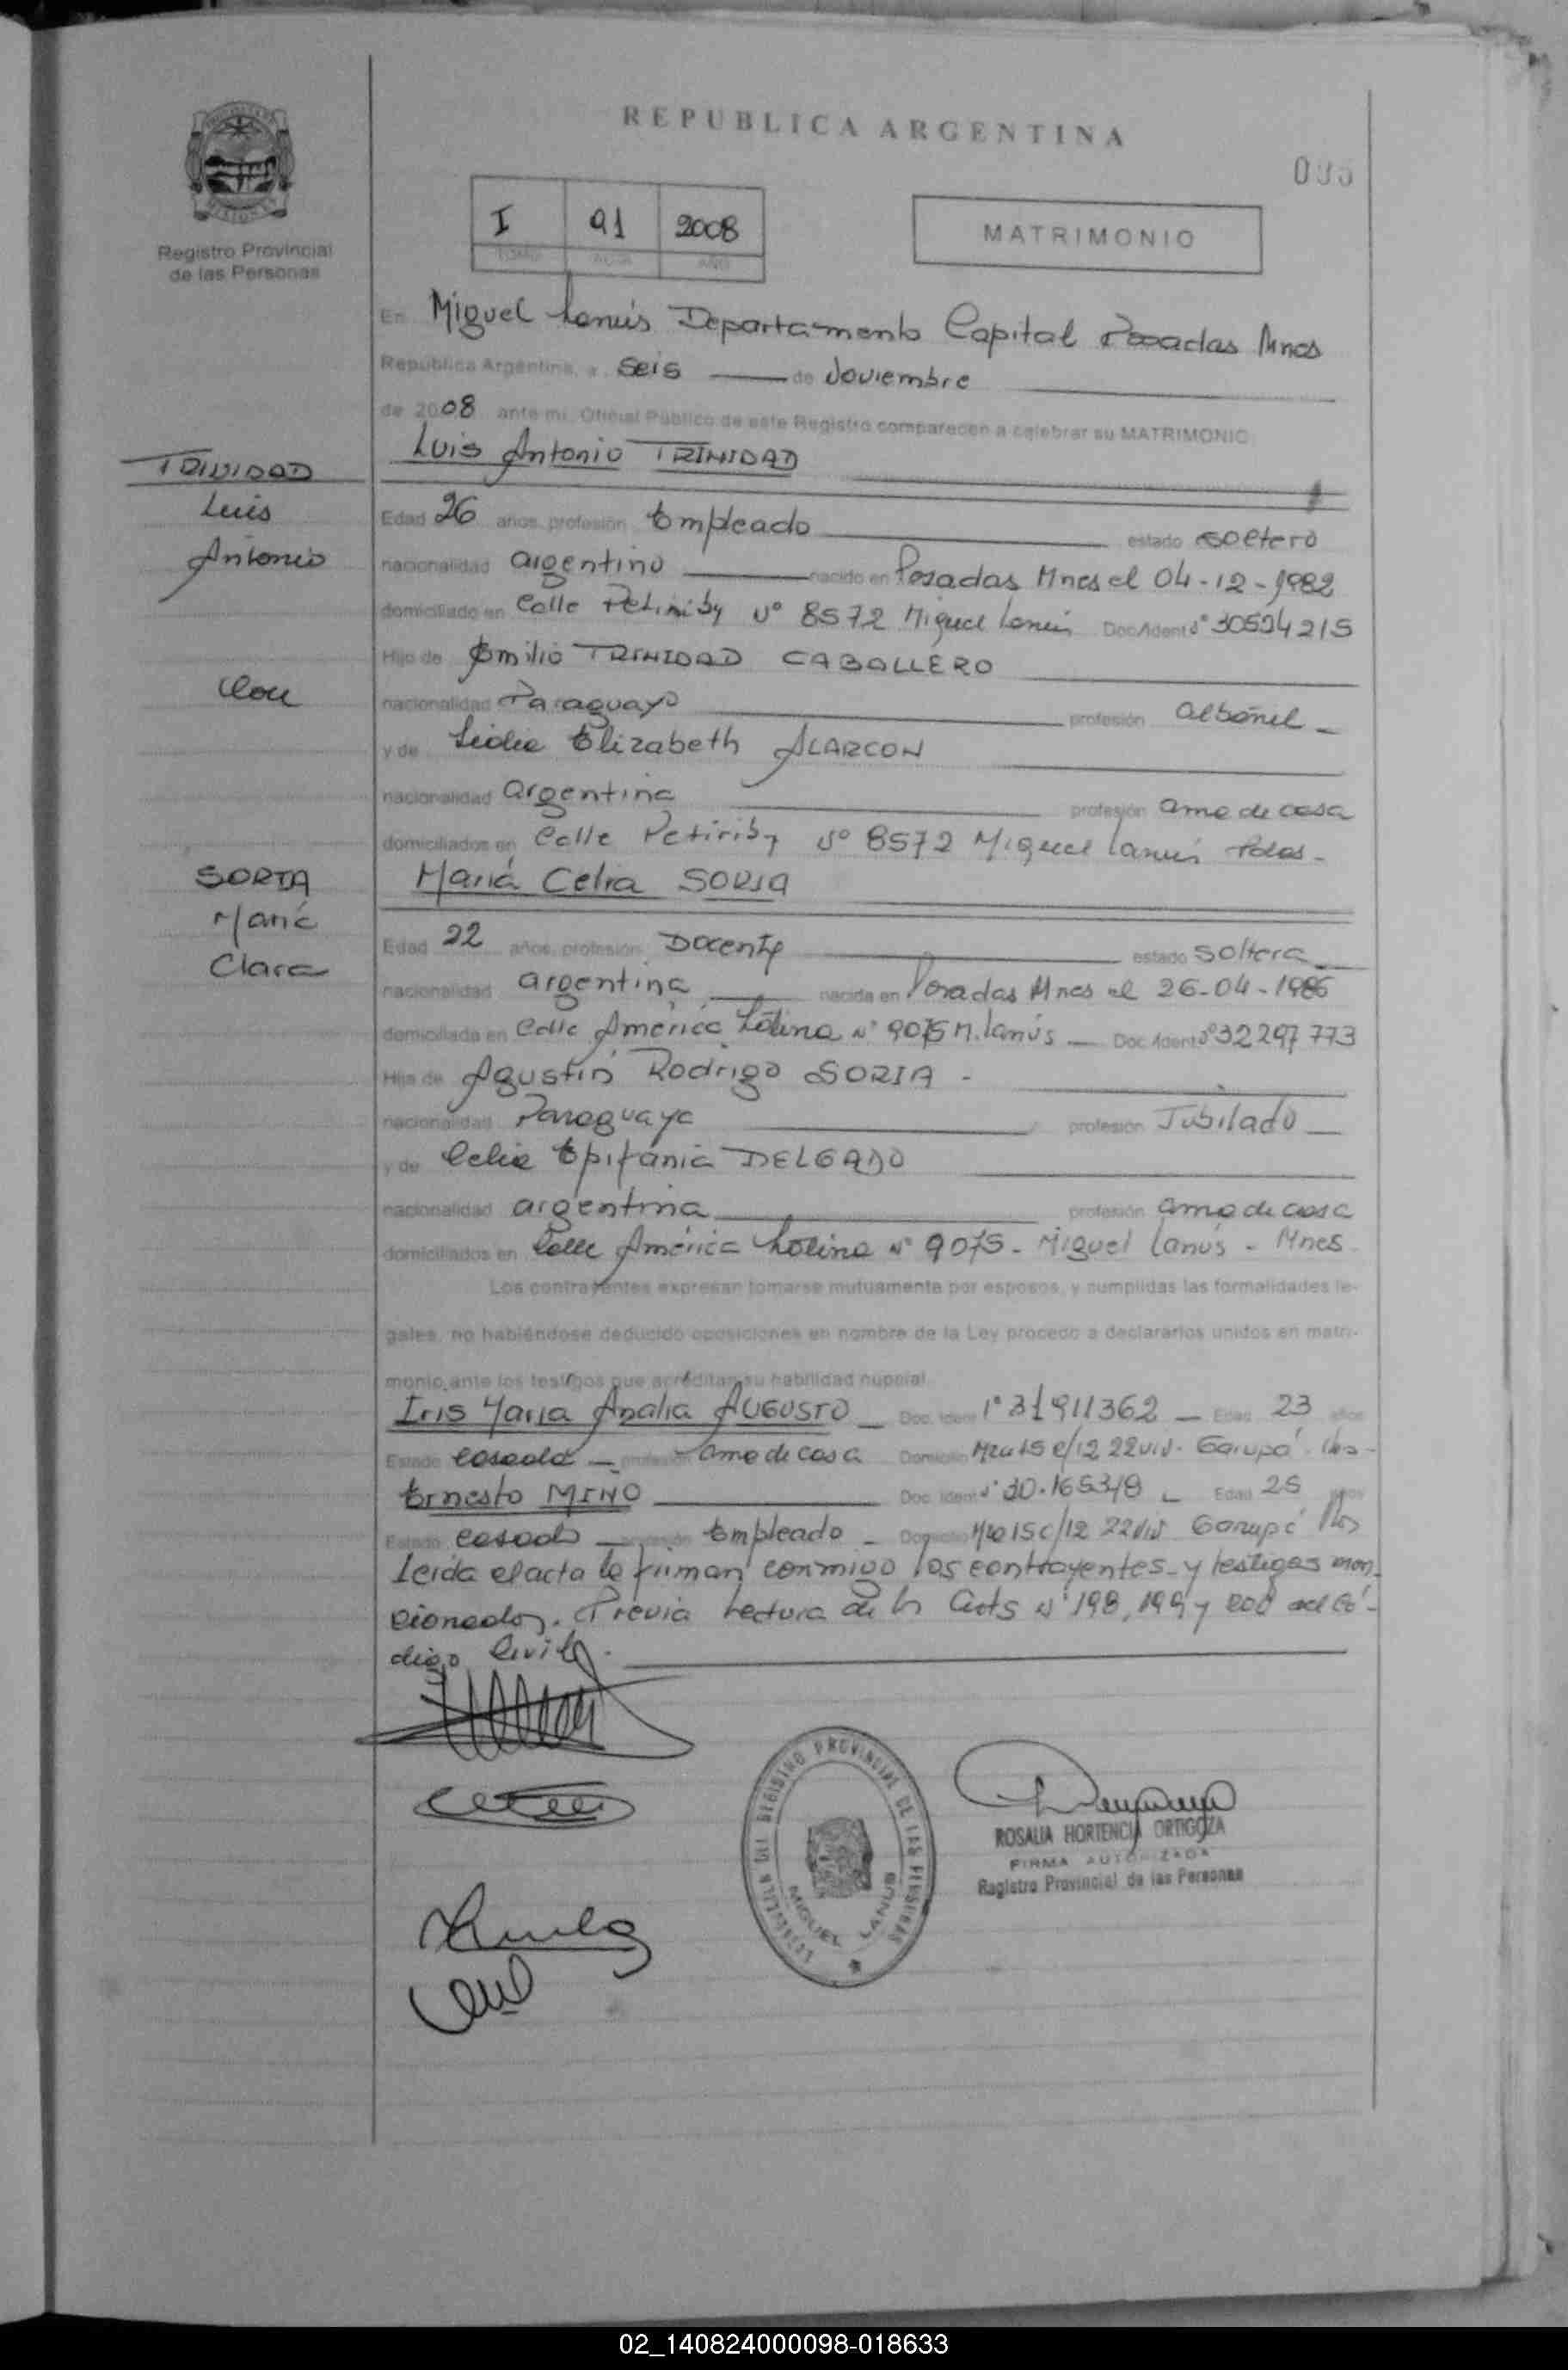 REPUBLICA ARGENTINA
Registro Provincial
de las Personas
I 91 2008
TOMO ACTA AÑO
MATRIMONIO
En Miguel Lanús Departamento Capital Posadas Mnes
Republica Argentina, a seis de Noviembre
de 2008 ante mi, Oficial Público de este Registro comparecen a celebrar su MATRIMONIO
Luis Antonio TRINIDAD
TRINIDAD
Luis
Antonio
Con
SORIA
María
Clara
Edad 26 años, profesión Empleado estado soltero
nacionalidad argentino nacido en Posadas Mnes el 04-12-1982
domiciliado en Calle Petiriby Nº 8572 Miguel Lanús Doc. Ident Nº
Hijo de Emilio TRINIDAD CABALLERO
nacionalidad Paraguayo profesión albañil
y de Lidia Elizabeth ALARCON
nacionalidad argentina profesión ama de casa
domiciliados en Calle Petiriby Nº 8572 Miguel Lanús
María Celia SORIA
Edad 22 años, profesión Docente estado soltera
nacionalidad argentina nacida en Posadas Mnes el 26-04-1986
domiciliada en Calle América Latina Nº 9075 M. Lanús Doc. Ident Nº 32297773
Hija de Agustín Rodrigo SORIA -
nacionalidad Paraguaya profesión Jubilado
y de Celia Epifania DELGADO
nacionalidad argentina profesión ama de casa
domiciliados en Calle América Latina Nº 9075 - Miguel Lanús - Mnes
Los contrayentes expresan tomarse mutuamente por esposos, y cumplidas las formalidades le-
gales, no habiéndose deducido oposiciones en nombre de la Ley procedo a declararlos unidos en matri-
monio, ante los testigos que acreditan su habilidad nupcial
Iris María Analia AUGUSTO Doc. Ident Nº 31911362 Edad 23 años
Estado casada profesión ama de casa Domicilio Garupá
Ernesto MIÑO Doc. Ident Nº Edad 25 años
Estado casado profesión Empleado Domicilio Mza 15 c/12 22 viv Garupá
Leída el acta la firman conmigo los contrayentes y testigos men-
cionados. Previa lectura de los Arts Nº 198, 199 y 200 del Có-
digo Civil.
DEL REGISTRO PROVINCIAL DE LAS PERSONAS
MIGUEL LANUS
ROSALIA HORTENCIA ORTIGOZA
FIRMA AUTORIZADA
Registro Provincial de las Personas
02_140824000098-018633